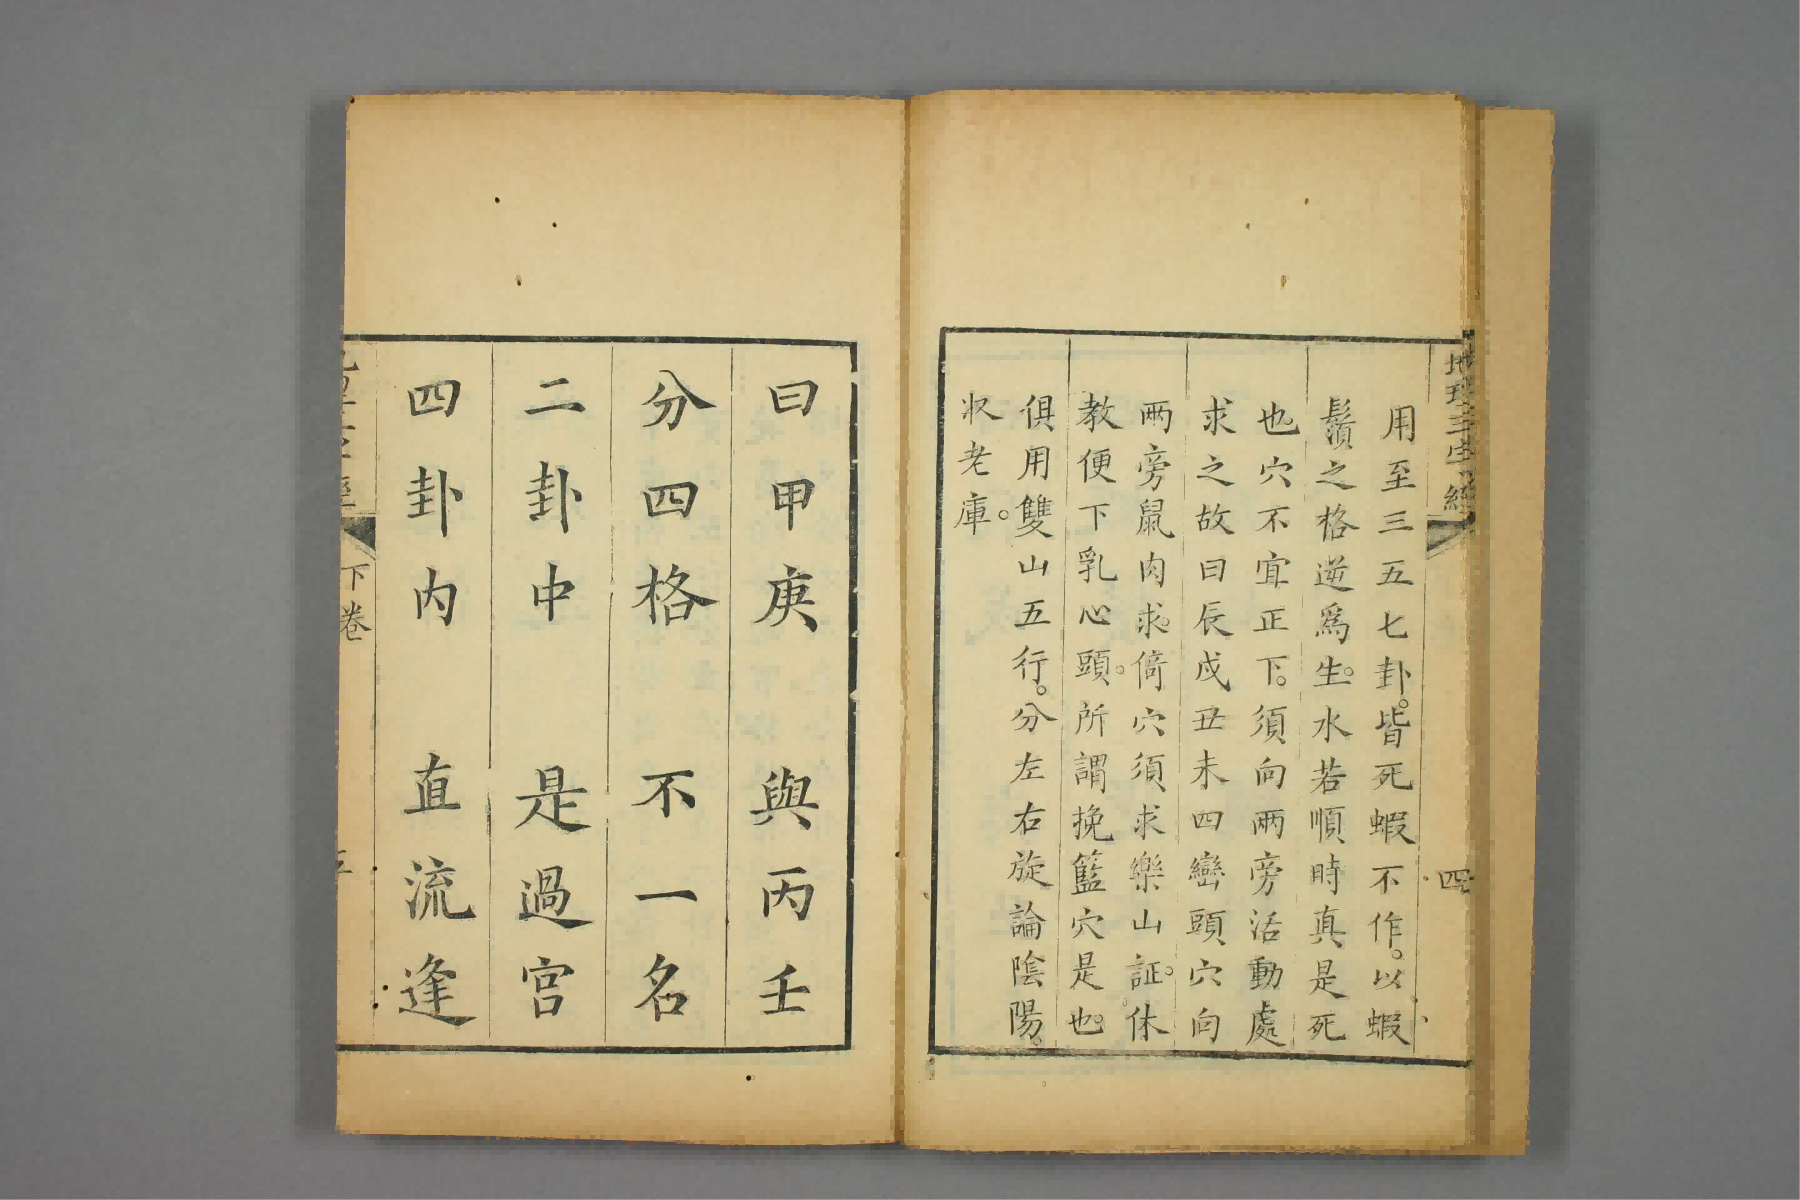 地理三字經
四
用至三五七卦。皆死蝦不作。以蝦
鬚之格逆爲生。水若順時真是死
也。穴不宜正下。須向兩旁活動處
求之故曰辰戌丑未四巒頭穴向
兩旁鼠肉求。倚穴須求樂山証。休
教便下乳心頭。所謂挽籃穴是也。
俱用雙山五行。分左右旋論陰陽。
收老庫。
曰甲庚 與丙壬
分四格 不一名
二卦中 是過宮
四卦內 直流逢
下卷